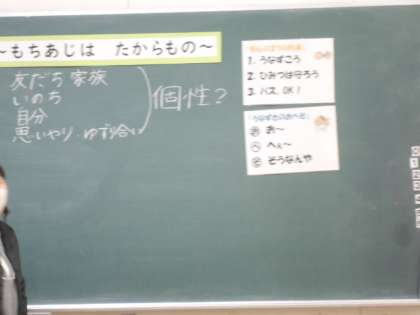 ～もちあじは たからもの～
友だち 家族
いのち
自分
思いやり・ゆずり合い
個性？
1. うなずこう
2. ひみつは守ろう
3. パス、OK！
「うなずきのおへそ」
お お～
へ へぇ～
そ そうなんや
0
1
2
3
4